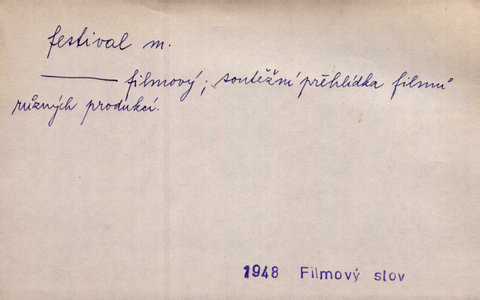 festival m.
——— filmový; soutěžní přehlídka filmů
různých produkcí.
1948 Filmový slov